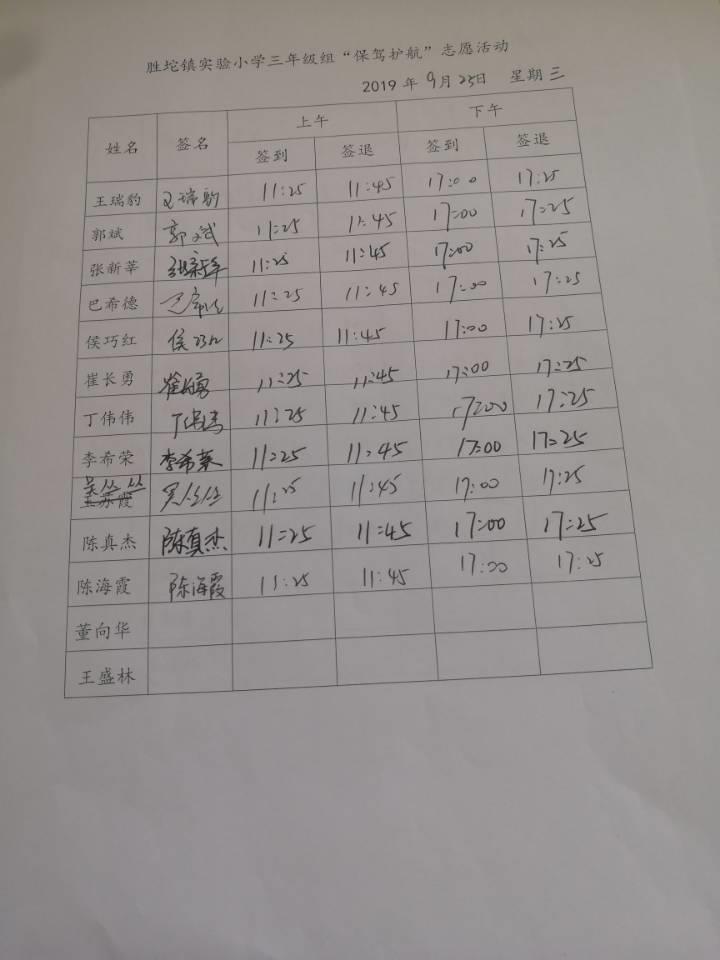 胜坨镇实验小学三年级组“保驾护航”志愿活动
2019 年 9 月 25 日 星期 三
姓名 签名 上午 下午
签到 签退 签到 签退
王瑞豹 王瑞豹 11:25 11:45 17:00 17:25
郭斌 郭斌 11:25 11:45 17:00 17:25
张新莘 张新莘 11:25 11:45 17:00 17:25
巴希德 11:25 11:45 17:00 17:25
侯巧红 侯巧红 11:25 11:45 17:00 17:25
崔长勇 崔长勇 11:25 11:45 17:00 17:25
丁伟伟 11:25 11:45 17:00 17:25
李希荣 李希荣 11:25 11:45 17:00 17:25
11:25 11:45 17:00 17:25
陈真杰 陈真杰 11:25 11:45 17:00 17:25
陈海霞 陈海霞 11:25 11:45 17:00 17:25
董向华
王盛林